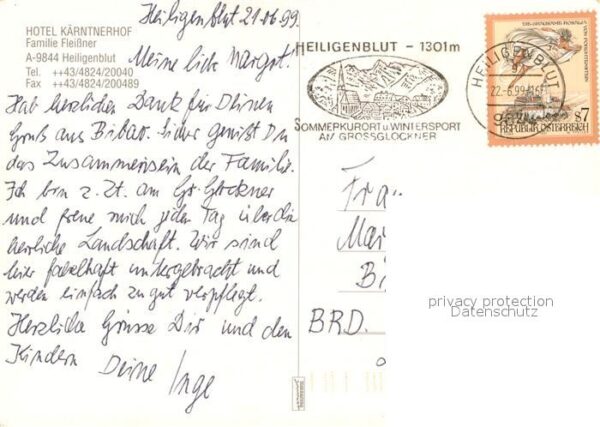 HOTEL KÄRNTNERHOF
Familie Fleißner
A-9844 Heiligenblut
Tel. ++43/4824/20040
Fax ++43/4824/200489
Heiligenblut 21.06.99.
Meine liebe Margot.
Hab herzlichen Dank für Deinen
Gruß aus Bibao. Sicher genießt Du
das Zusammensein der Familie.
Ich bin z. Zt. am Gr. Glockner
und freue mich jeden Tag über die
herrliche Landschaft. Wir sind
hier fabelhaft untergebracht und
werden einfach zu gut verpflegt.
Herzliche Grüsse Dir und den
Kindern Deine Inge
HEILIGENBLUT - 1301m
SOMMERKURORT u. WINTERSPORT
AM GROSSGLOCKNER
HEILIGENBLUT
22.-6.99
S7
REPUBLIK ÖSTERREICH
Fra
Mar
Bi
BRD.
privacy protection
Datenschutz